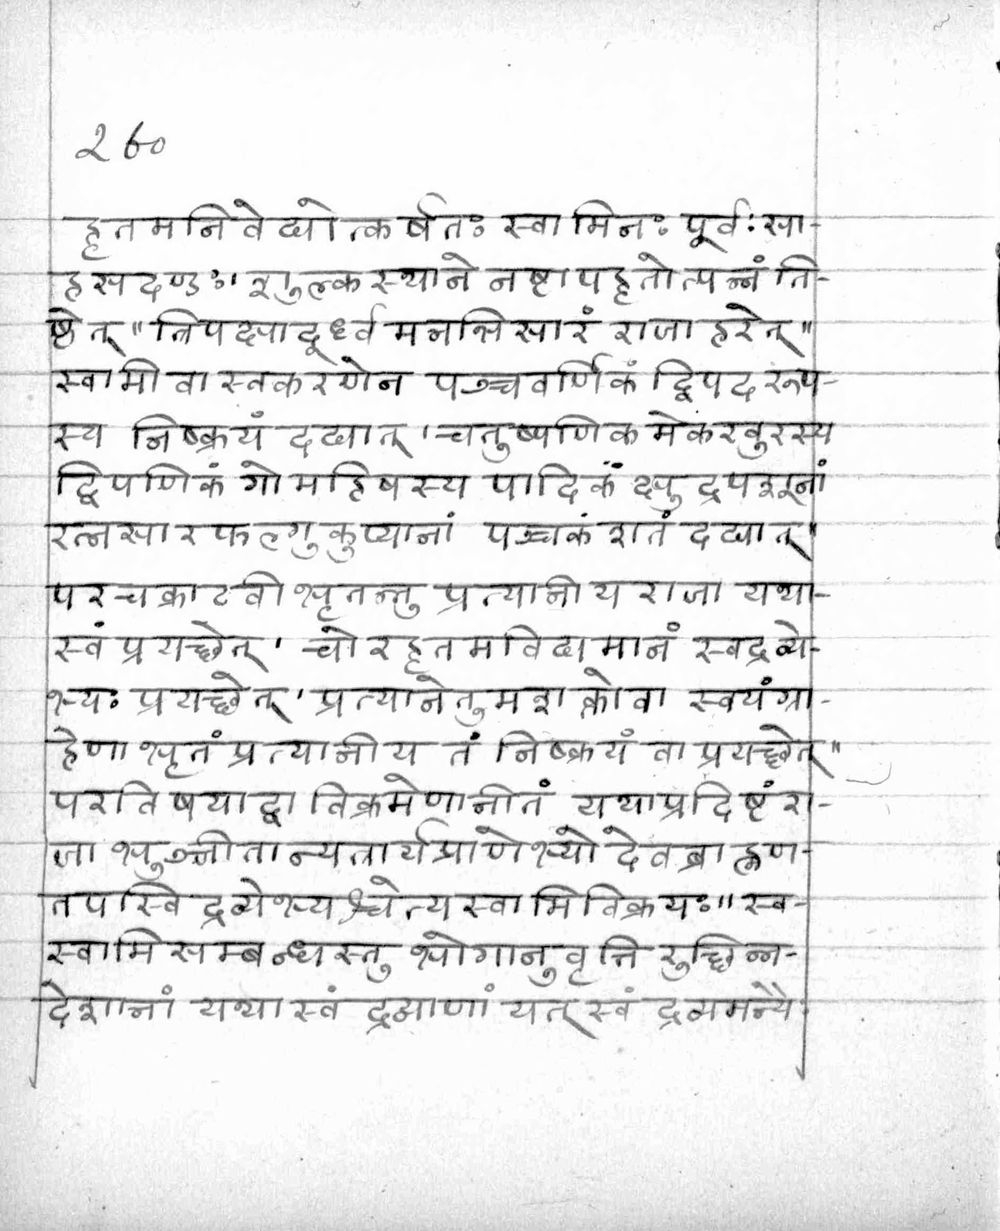 २६०
हृतमनिवेद्योत्कर्षतः स्वामिनः पूर्वः सा-
हसदण्डः' शुल्कस्थाने नष्टापहृतोत्पन्नं ति-
ष्ठेत्" त्रिपक्षादूर्ध्वमनभिसारं राजा हरेत्"
स्वामी वा स्वकरणेन पञ्चवर्णिकं द्विपदरूप-
स्य निष्क्रयं दद्यात् 'चतुष्पणिकमेकखुरस्य
द्विपणिकं गोमहिषस्य पादिकं क्षुद्रपशूनां
रत्नसारफल्गुकुप्यानां पञ्चकं शतं दद्यात्"
परचक्राटवीभृतन्तु प्रत्यानीय राजा यथा-
स्वं प्रयच्छेत्' चोरहृतमविद्यमानं स्वद्रव्ये-
भ्यः प्रयच्छेत्' प्रत्यानेतुमशक्तो वा स्वयंग्रा-
हेणाभृतं प्रत्यानीय तं निष्क्रयं वा प्रयच्छेत्"
परविषयाद्वा विक्रमेणानीतं यथाप्रदिष्टं रा-
जा भुञ्जीतान्यत्रार्यप्राणेभ्यो देवब्राह्मण-
तपस्विद्रव्येभ्यश्चेत्यस्वामिविक्रयः" स्व-
स्वामिसम्बन्धस्तु भोगानुवृत्तिरुच्छिन्न-
देशानां यथास्वं द्रव्याणां यत् स्वं द्रव्यमन्यै